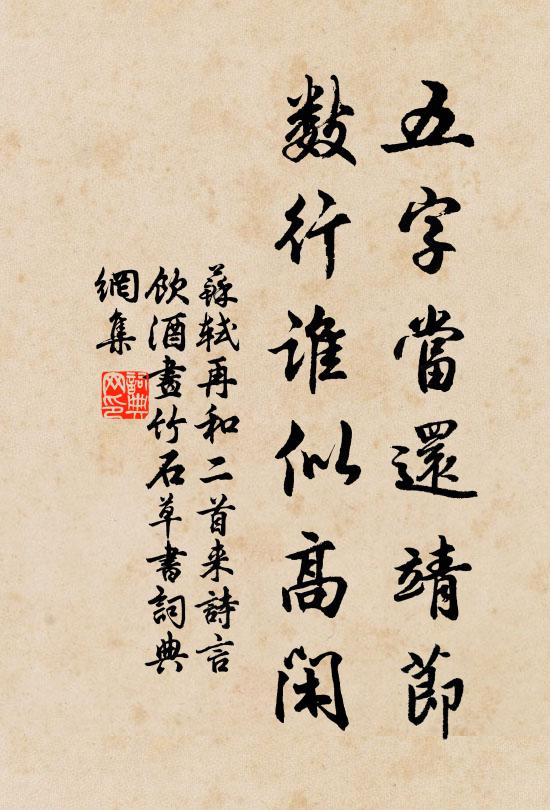 五字當還靖節
数行誰似高閑
蘇軾再和二首来詩言
飲酒畫竹石草書詞典
網集
詞典
网印